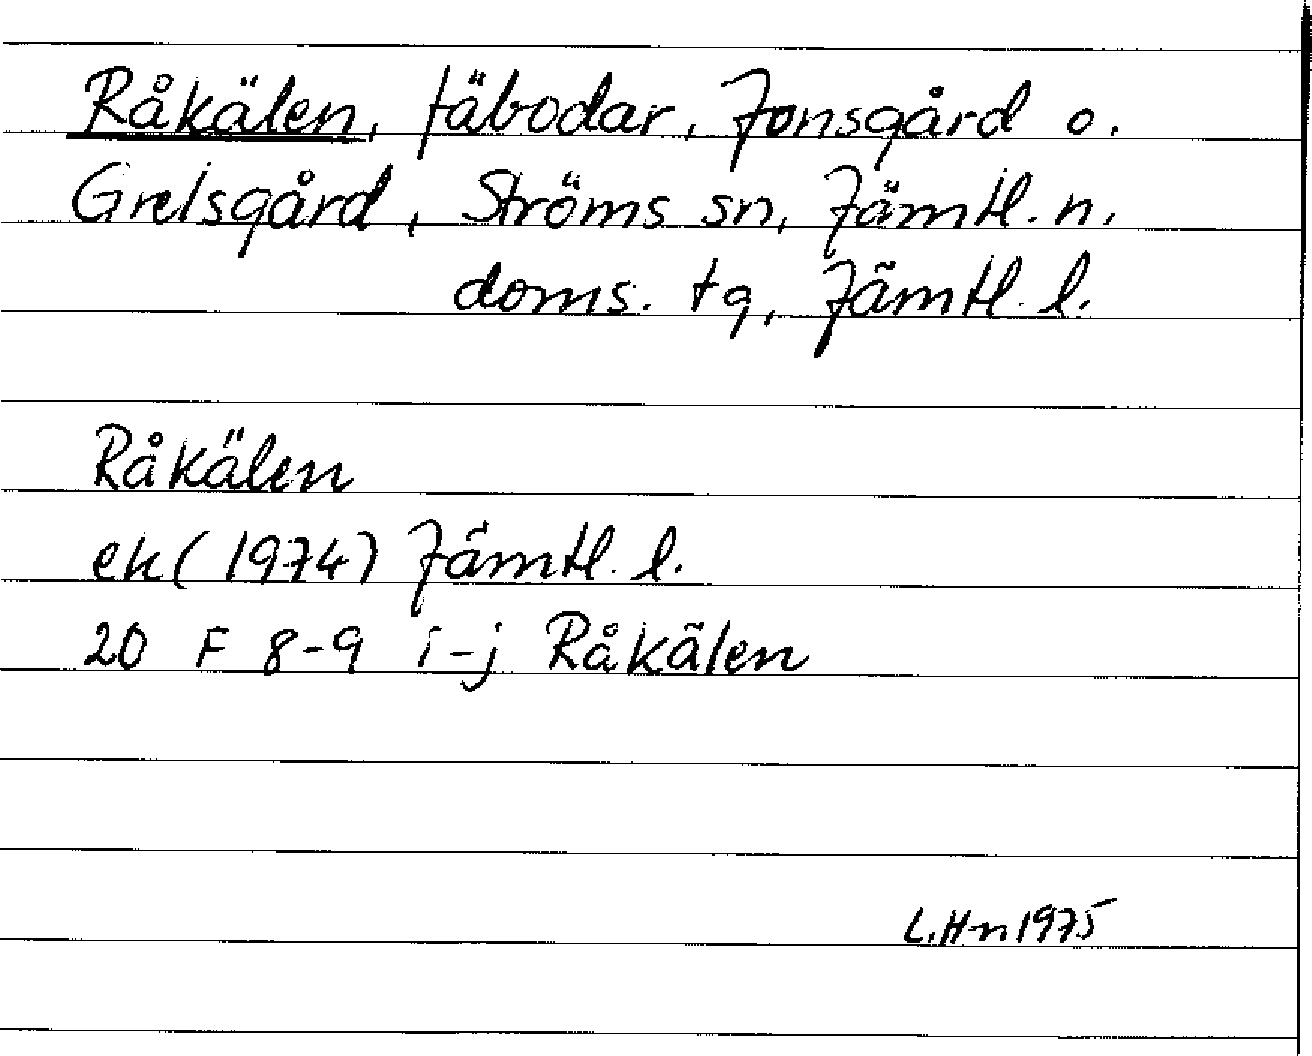 Råkälen, fäbodar, Jonsgård o.
Grelsgård, Ströms sn, Jämtl. n.
doms. tg, Jämtl. l.
Råkälen
ek (1974) Jämtl. l.
20 F 8-9 i-j Råkälen
L.H-n 1975